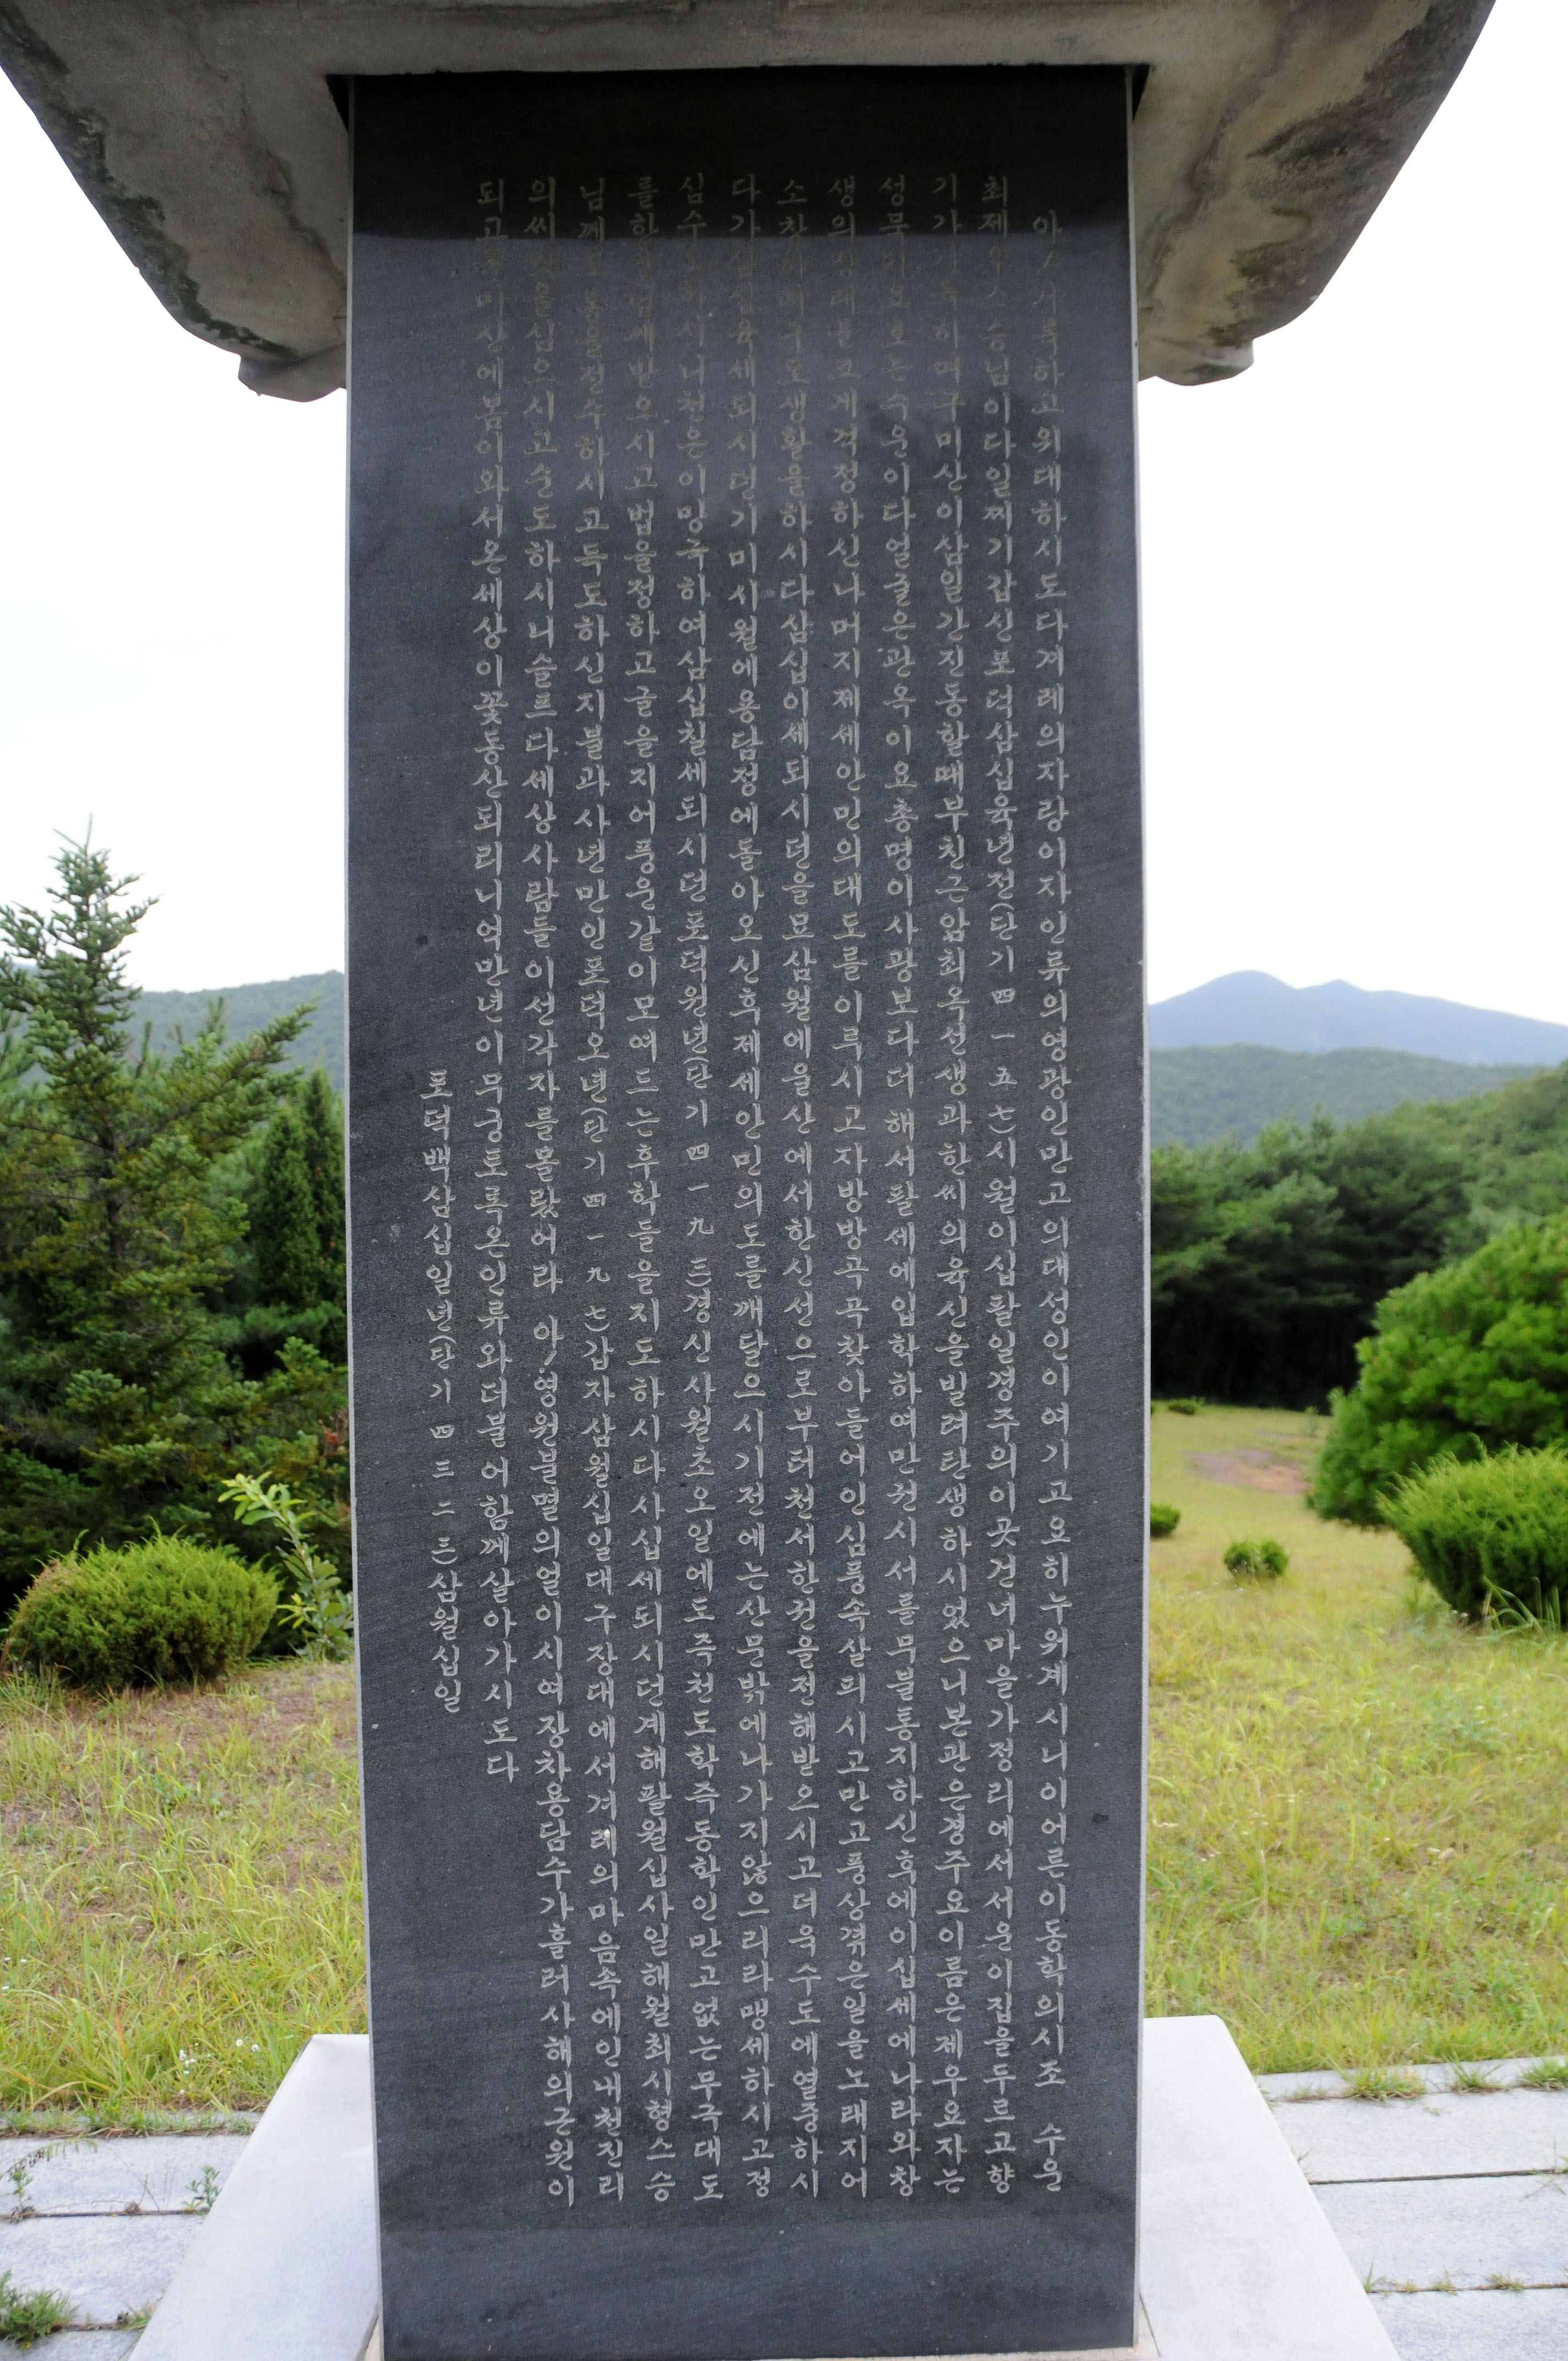 아 하고위대하시도다겨레의자랑이자인류의영광인만고의대성인이여기고요히누워계시니이어른이동학의시조 수운
최제우스승님이다일찌기갑신포덕삼십육년전(단기四一五七)시월이십활일경주의이곳건너마을가정리에서서운이집을두르고향
기가 하며구미산이삼일간진동할때부친근암최옥선생과한씨의육신을빌려탄생하시었으니본관은경주요이름은제우요자는
성묵이요호는수운이다얼굴은관옥이요총명이사광보다더해서팔세에입학하여만권시서를무불통지하신후에이십세에나라와창
생의 를크게걱정하신나머지제세안민의대도를이루시고자방방곡곡찾아들어인심풍속살피시고만고풍상겪은일을노래지어
소창하며구도생활을하시다삼십이세되시던을묘삼월에울산에서한신선으로부터천서한권을전해받으시고더욱수도에열중하시
다가삼십육세되시던기미시월에용담정에돌아오신후제세안민의도를깨달으시기전에는산문밖에나가지않으리라맹세하시고정
심수도하시니천은이망극하여삼십칠세되시던포덕원년(단기四一九三)경신사월초오일에도즉천도학즉동학인만고없는무극대도
를한울님께받으시고법을정하고글을지어풍운같이모여드는후학들을지도하시다사십세되시던계해팔월십사일해월최시형스승
님께도통을전수하시고득도하신지불과사년만인포덕오년(단기四一九七)갑자삼월십일대구장대에서겨레의마음속에인내천진리
의씨 을심으시고순도하시니슬프다세상사람들이선각자를몰랐어라 아!영원불멸의얼이시여장차용담수가흘러사해의근원이
되고구미산에봄이와서온세상이꽃동산되리니억만년이무궁토록온인류와더불어함께살아가시도다
포덕백삼십일년(단기四三二三)삼월십일